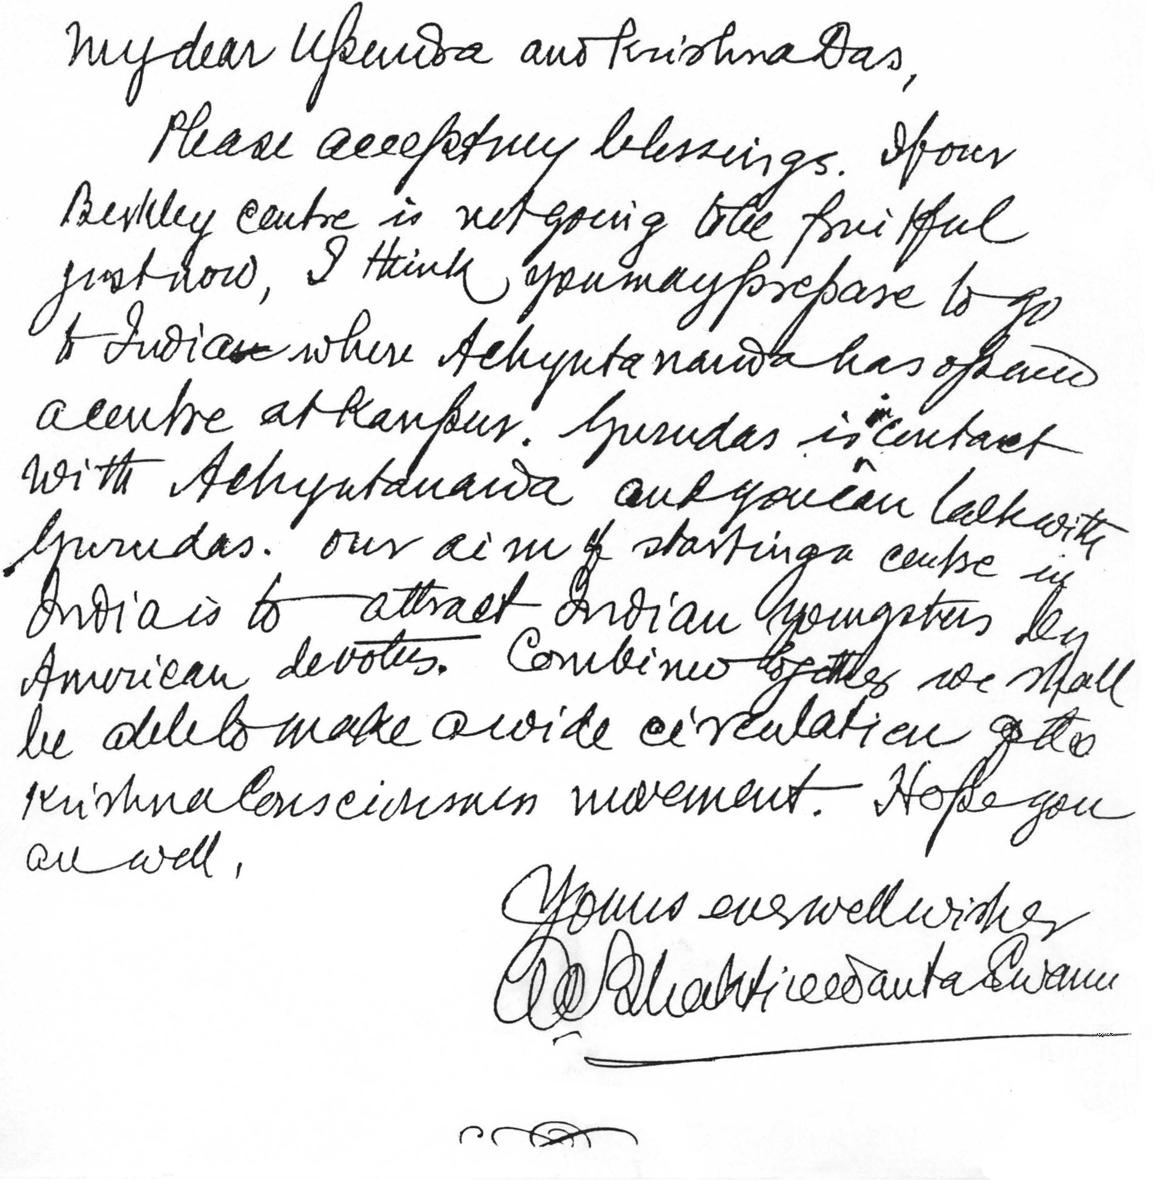 My dear Upendra and Krishna Das,
Please accept my blessings. If our
Berkley centre is not going to be fruitful
just now, I think you may prepare to go
to India where Achyutananda has opened
a centre at Kanpur. Gurudas is in contact
with Achyutananda and you can talk with
Gurudas. Our aim of starting a centre in
India is to attract Indian youngsters by
American devotees. Combined together we shall
be able to make a wide circulation of the
Krishna Consciousness movement. Hope you
are well.
Yours ever well wisher
AC Bhaktivedanta Swami